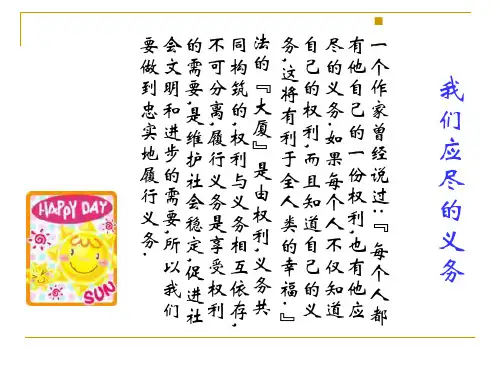 我们应尽的义务
一个作家曾经说过:『每个人都
有他自己的一份权利,也有他应
尽的义务.如果每个人不仅知道
自己的权利,而且知道自己的义
务,这将有利于全人类的幸福.』
法的『大厦』是由权利,义务共
同构筑的,权利与义务相互依存,
不可分离,履行义务是享受权利
的需要,是维护社会稳定,促进社
会文明和进步的需要,所以我们
要做到忠实地履行义务.
HAPPY DAY
SUN